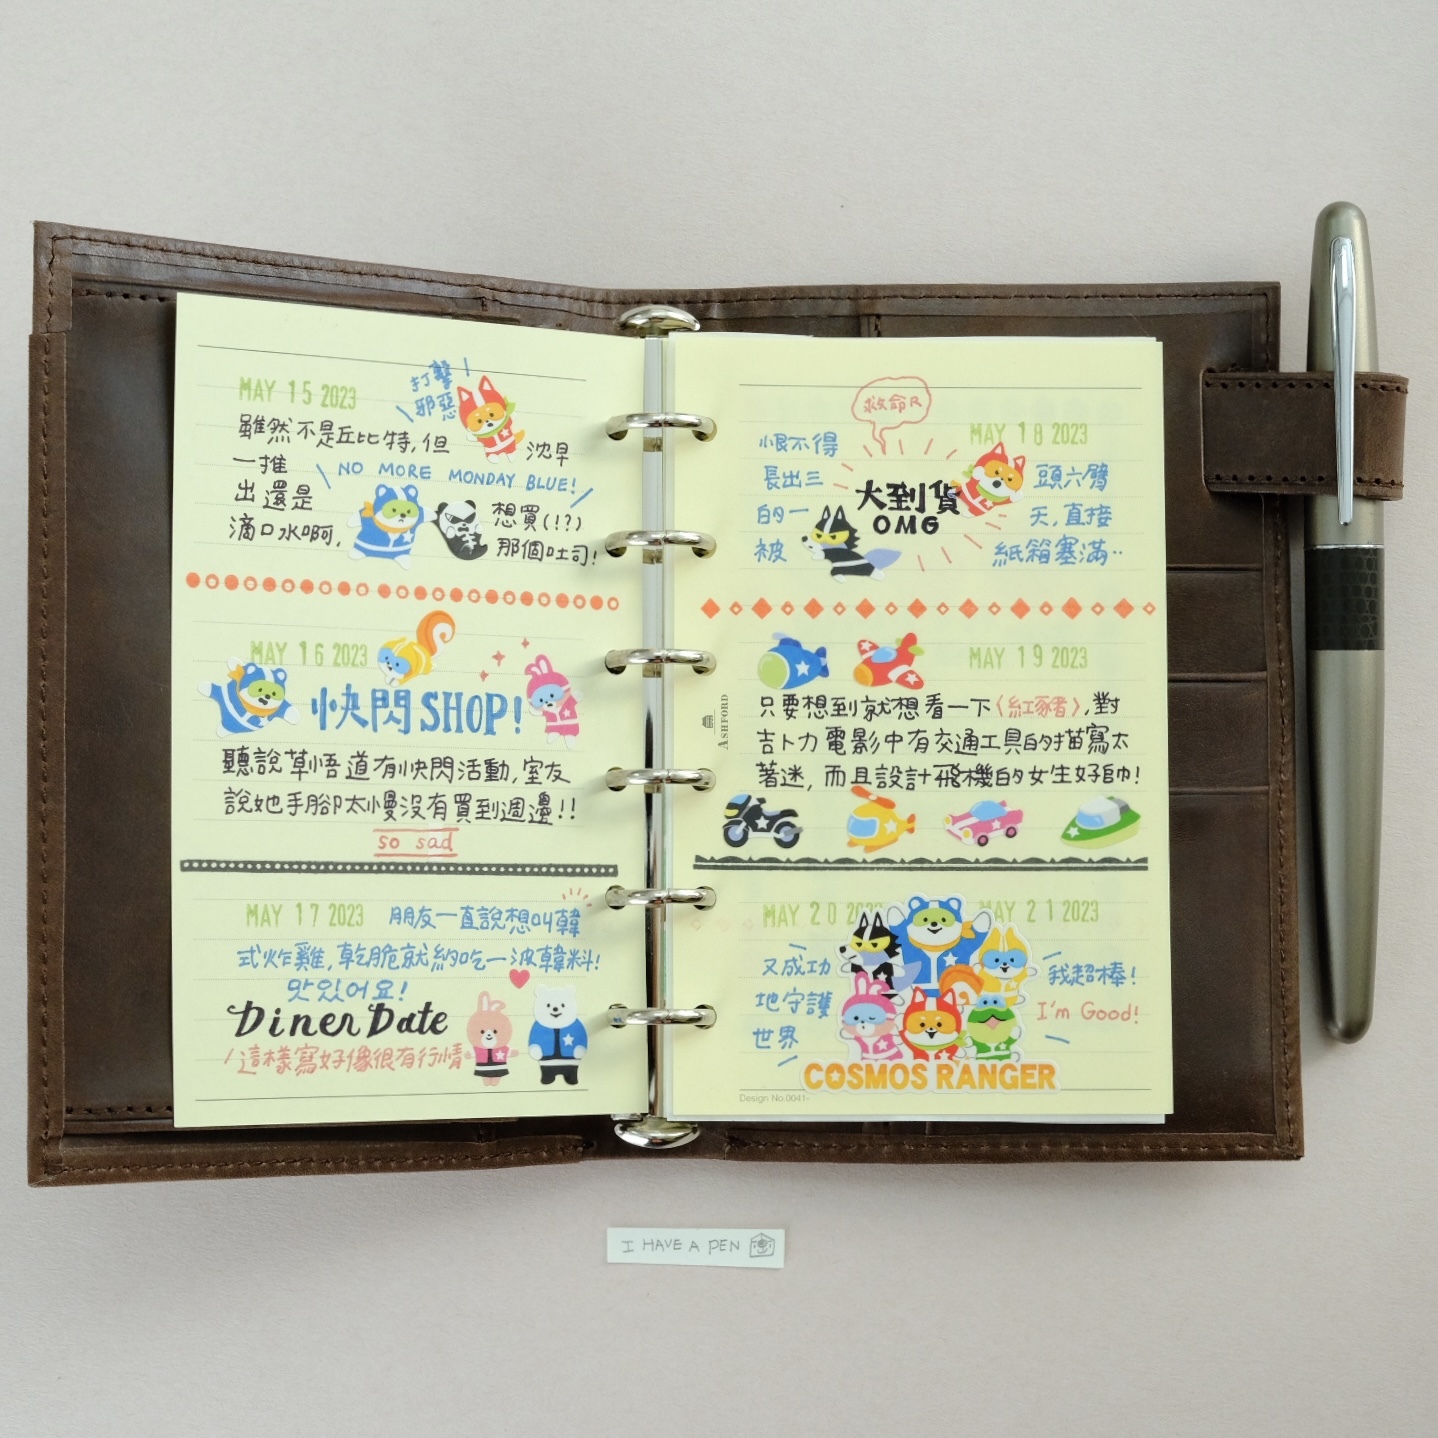 MAY 15 2023
打擊
邪惡
雖然不是丘比特,但
沈早
一推
NO MORE MONDAY BLUE!
出還是
想買(!?)
滴口水啊,
那個吐司!
MAY 16 2023
快閃SHOP!
聽說草悟道有快閃活動,室友
說她手腳太慢沒有買到週邊!!
so sad
MAY 17 2023
朋友一直說想叫韓
式炸雞,乾脆就約吃一波韓料!
맛있어요!
Diner Date
這樣寫好像很有行情
救命R
MAY 18 2023
恨不得
長出三
頭六臂
大到貨
OMG
的一
天,直接
被
紙箱塞滿..
ASHFORD
MAY 19 2023
只要想到就想看一下〈紅豬〉,對
吉卜力電影中有交通工具的描寫太
著迷,而且設計飛機的女生好帥!
MAY 20 202
MAY 21 2023
又成功
地守護
世界
我超棒!
I'm Good!
COSMOS RANGER
Design No.0041-
I HAVE A PEN